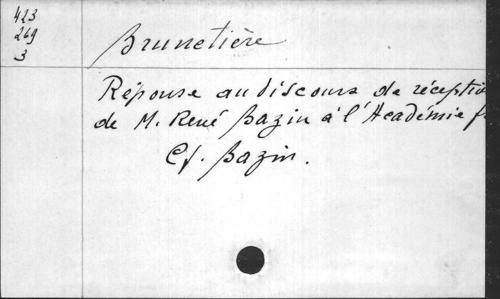 423
269
3
Brunetière
Réponse au discours de réception
de M. René Bazin à l'Académie f
Cf. Bazin.